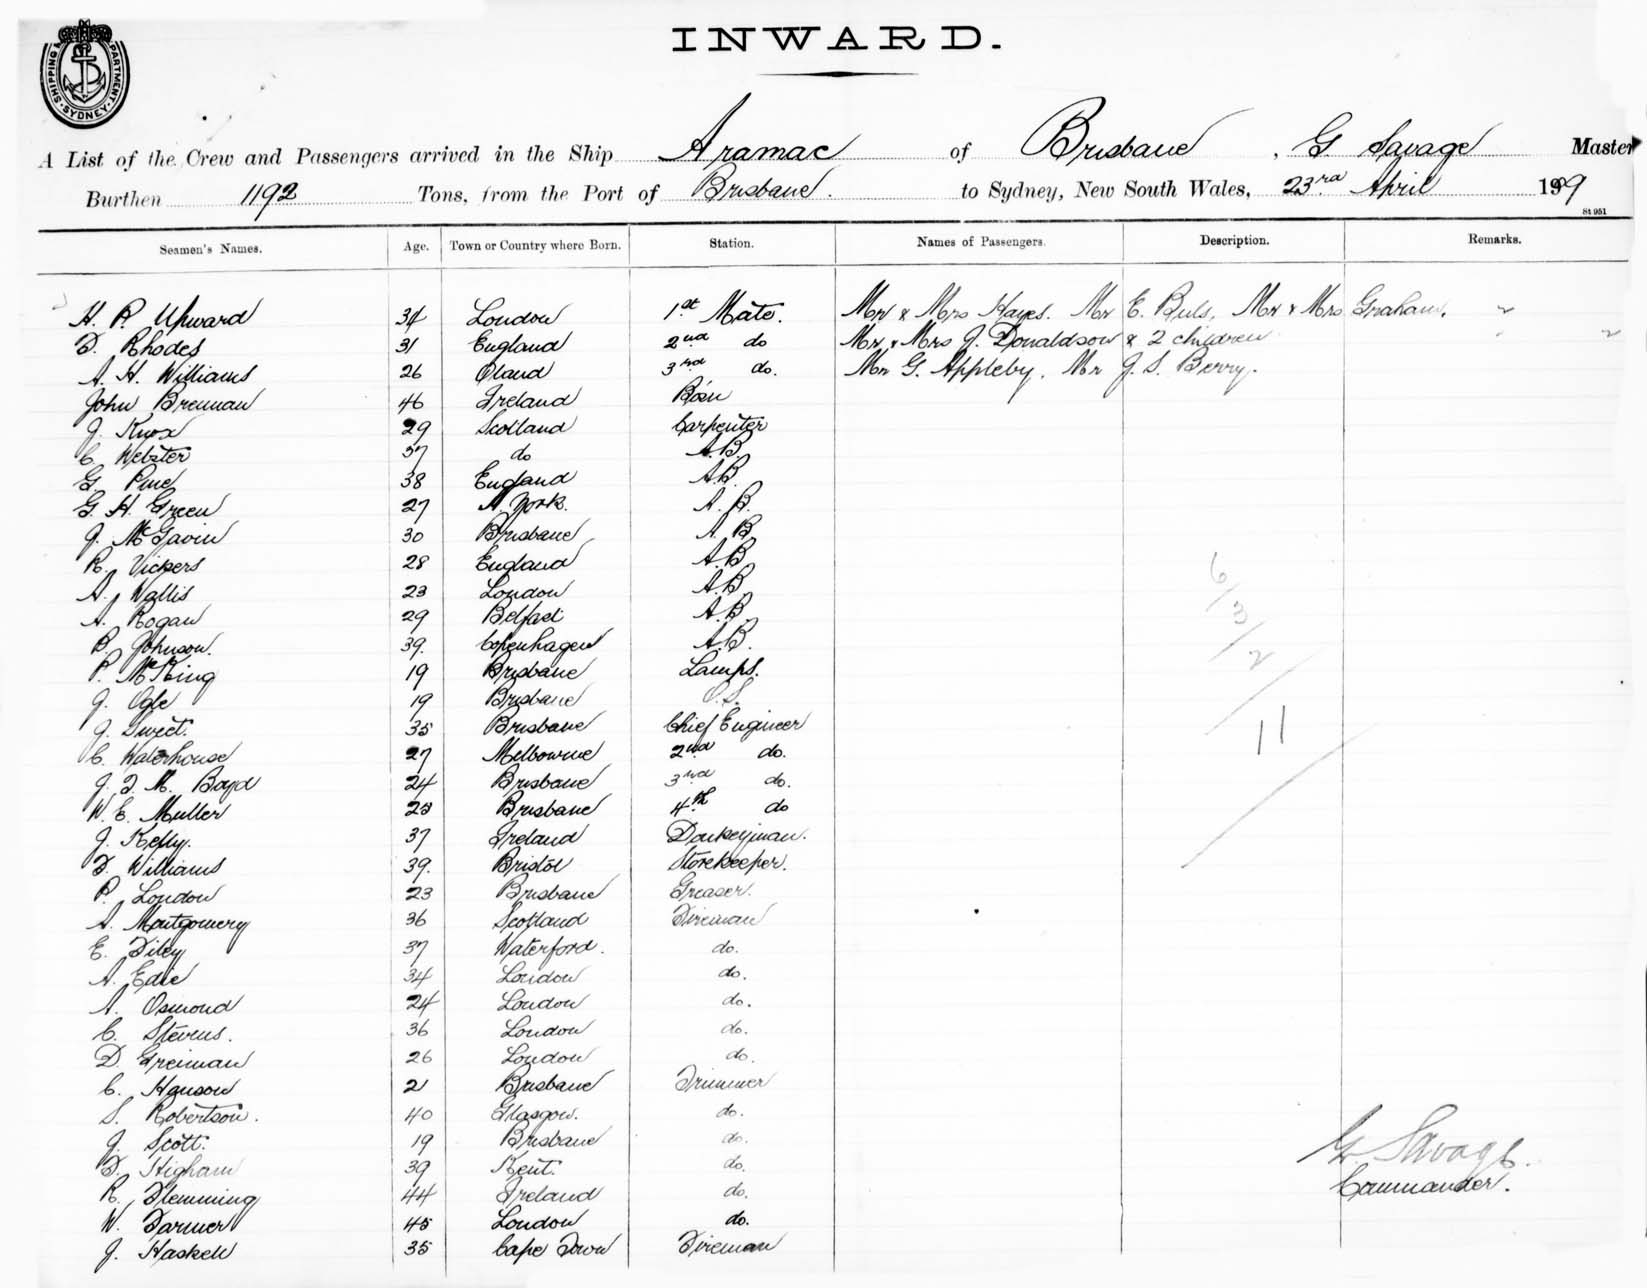 INWARD.
SHIPPING DEPARTMENT · SYDNEY ·
A List of the Crew and Passengers arrived in the Ship Aramac of Brisbane, G Savage Master
Burthen 1192 Tons, from the Port of Brisbane. to Sydney, New South Wales, 23rd April 199
St 951
Seamen's Names. Age. Town or Country where Born. Station. Names of Passengers. Description. Remarks.
H. P. Upward 34 London 1st Mate. Mr & Mrs Hayes. Mr E. Buls, Mr & Mrs Graham.
D. Rhodes 31 England 2nd do Mr & Mrs J. Donaldson & 2 children
A. H. Williams 26 Oland 3rd do. Mr G. Appleby. Mr J. S. Berry.
John Brennan 46 Ireland Bosn
J. Knox 29 Scotland Carpenter
C. Webster 37 do A.B.
G. Pine 38 England A.B.
G. H. Green 27 N. York. A. B.
J. McGavin 30 Brisbane A. B.
R. Vickers 28 England A.B.
A. Wallis 23 London A.B.
A. Rogan 29 Belfast A.B.
P. Johnson. 39. Copenhagen A.B.
P. McKing 19 Brisbane Lamps.
J. Ogle 19 Brisbane O.S.
J. Sweet. 35 Brisbane Chief Engineer
C. Waterhouse 27 Melbourne 2nd do.
J. F. M. Boyd 24 Brisbane 3rd do.
W. E. Muller 23 Brisbane 4th do
J. Kelly. 37 Ireland Donkeyman.
F. Williams 39. Bristol Storekeeper.
P. London 23 Brisbane Greaser.
A. Montgomery 36 Scotland Fireman
E. Filey 37 Waterford. do.
A. Edie 34 London do.
A. Osmond 24 London do.
C. Stevens. 36 London do.
D. Greiman 26 London do.
C. Hanson 21 Brisbane Trimmer
S. Robertson. 40 Glasgow. do.
J. Scott. 19 Brisbane do.
F. Higham 39 Kent. do.
R. Flemming 44 Ireland do.
W. Farmer 45 London do.
J. Haskell 35 Cape Town Fireman
6/3/2/11
G. Savage.
Commander.